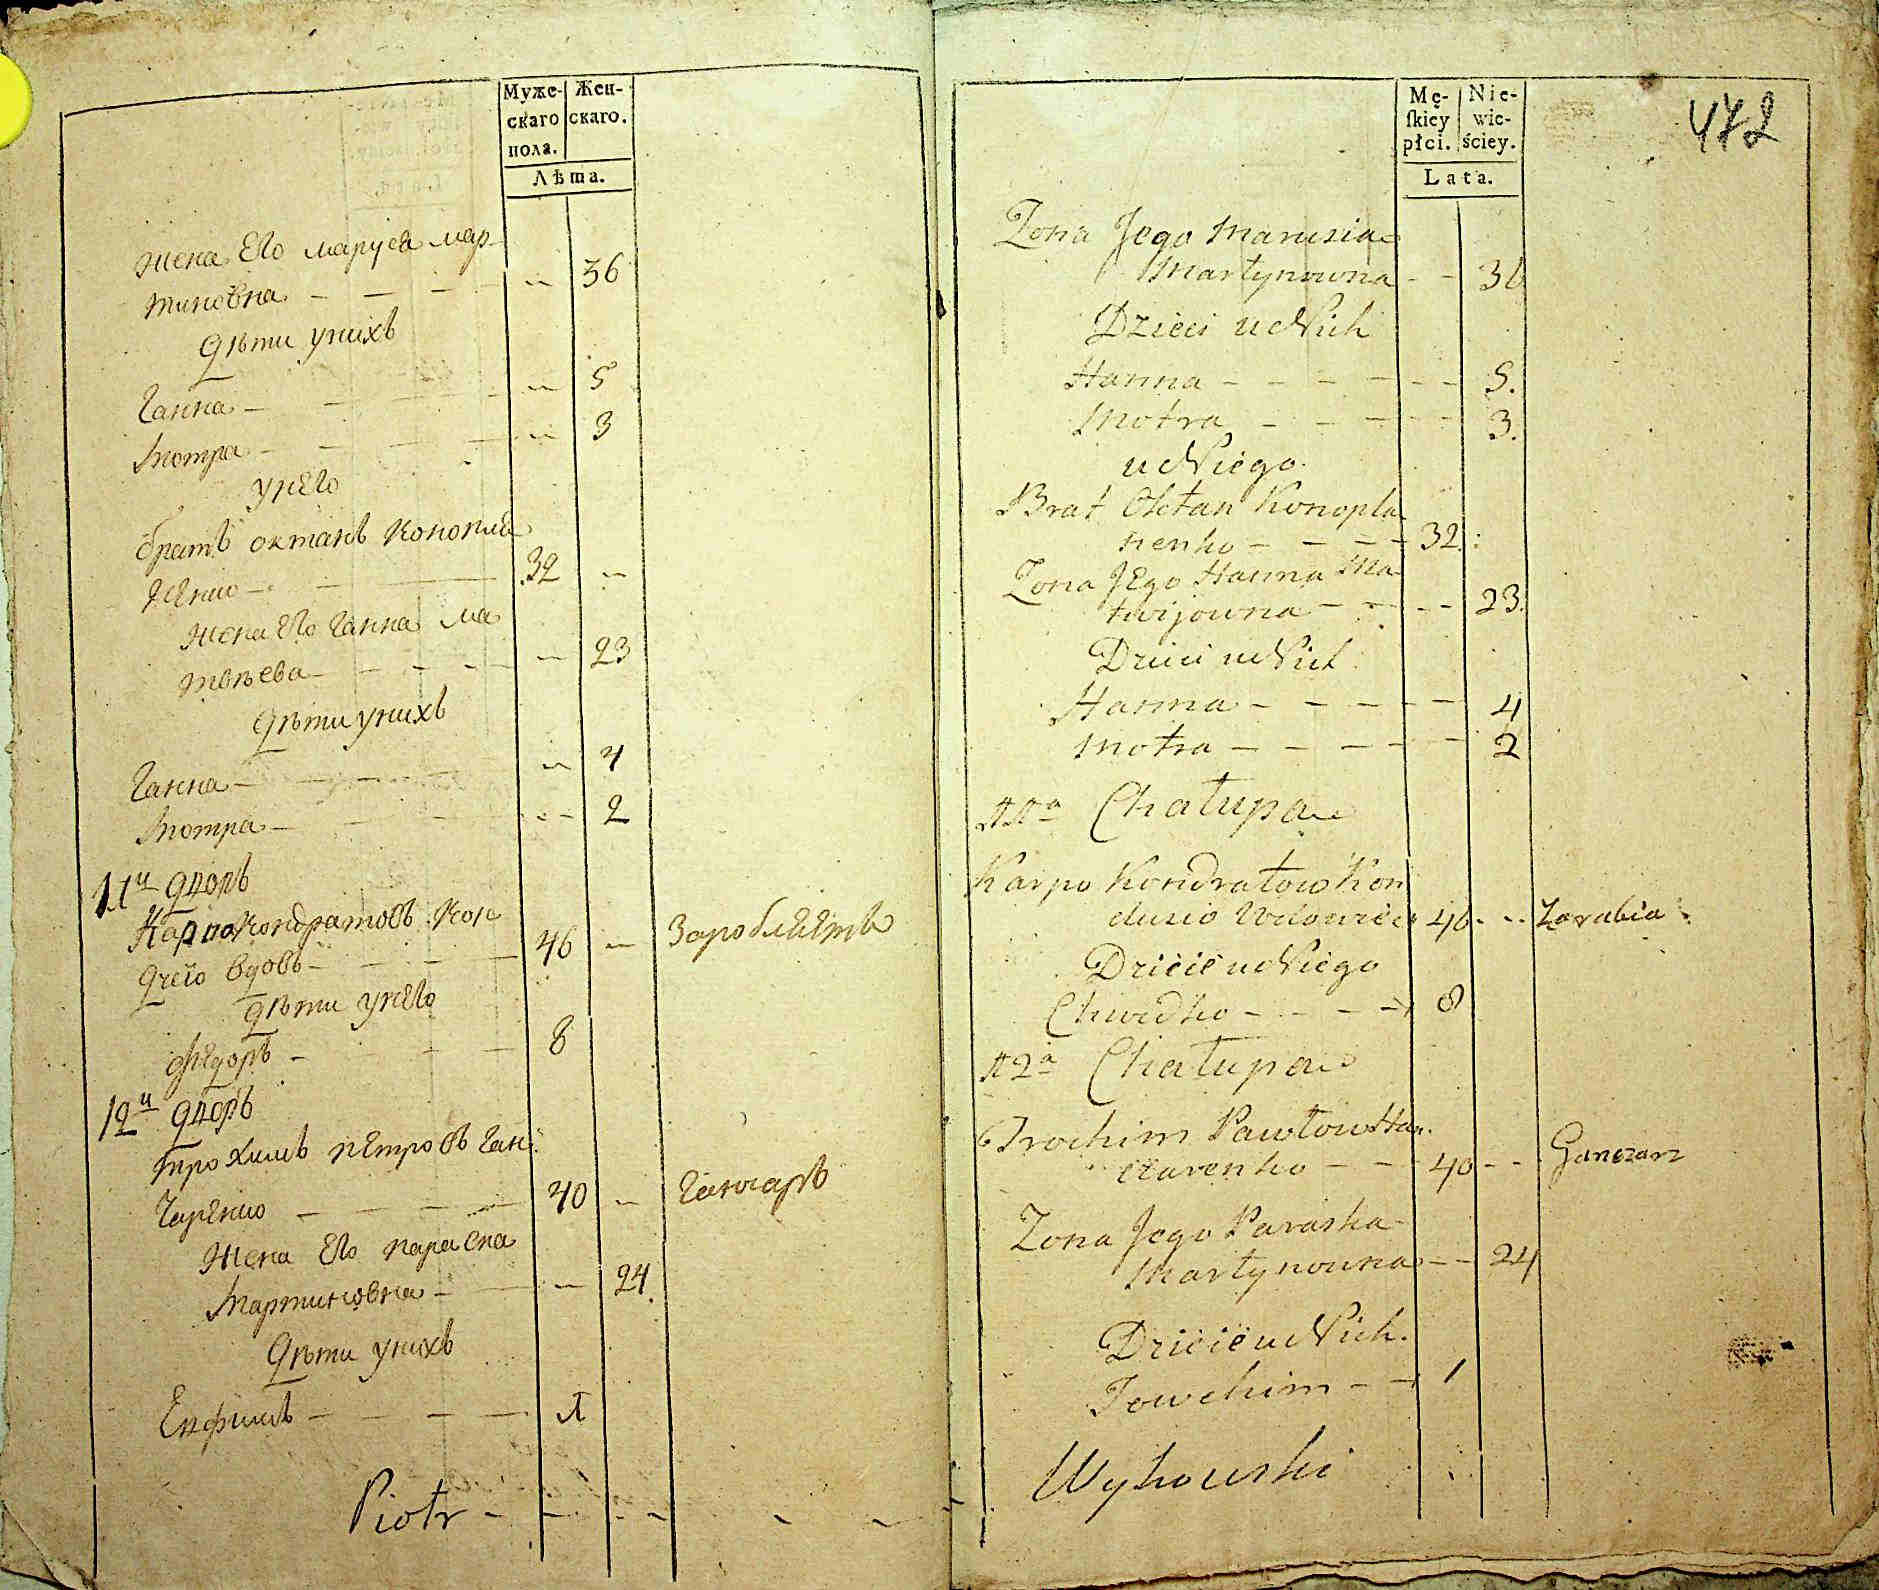 Муже-
скаго
пола.
Жен-
скаго.
Лѣта.
жена Его маруся мар-
тиновна - - - - " 36
дѣти унихъ
Ганна - - - " 5
Мотра - - - " 3
унего
братъ октанъ Коноплѣ
ненко - - - 32 "
жена Его Ганна ма
твѣева - - - - " 23
дѣти унихъ
Ганна - - - - " 4
Мотра - - - - - 2
11й дворъ
Карпо Кондратовъ Кон
дчего вдовъ - - - - 46 " Заробляетъ
дѣти унего
Федоръ - - - 8
12й дворъ
трохимъ петровъ Ган
чаренко - - - - 40 " Ганчаръ
Жена Его параска
Мартиновна - - " 24.
Дѣти унихъ
Евфимъ - - - - 1
Piotr - - - - - -
Mę-
ſkiey
płci.
Nie-
wie-
ściey.
Lata.
472
Zona Jego Marusia
Martynowna - - 36
Dzieci u Nich
Hanna - - - - - - - 5.
Motra - - - - - - 3.
u Niego.
Brat Oktan Konopla-
nenko - - - - 32. :
Zona JEgo Hanna Ma-
twijowna - - - - 23.
Dzieci u Nich
Hanna - - - - - - 4
Motra - - - - - 2
11a Chałupa
Karpo Kondratow Kon
dusio Wdowiec 46 - - Zarabia.
Dzieci u Niego
Chwedko - - - - 8
12a Chałupa
Trochim Pawłow Han-
czarenko - - - 40 - - Ganczarz
Zona Jego Paraska-
Martynowna - - 24
Dzieci u Nich.
Jowchim - - 1
Wyhowski